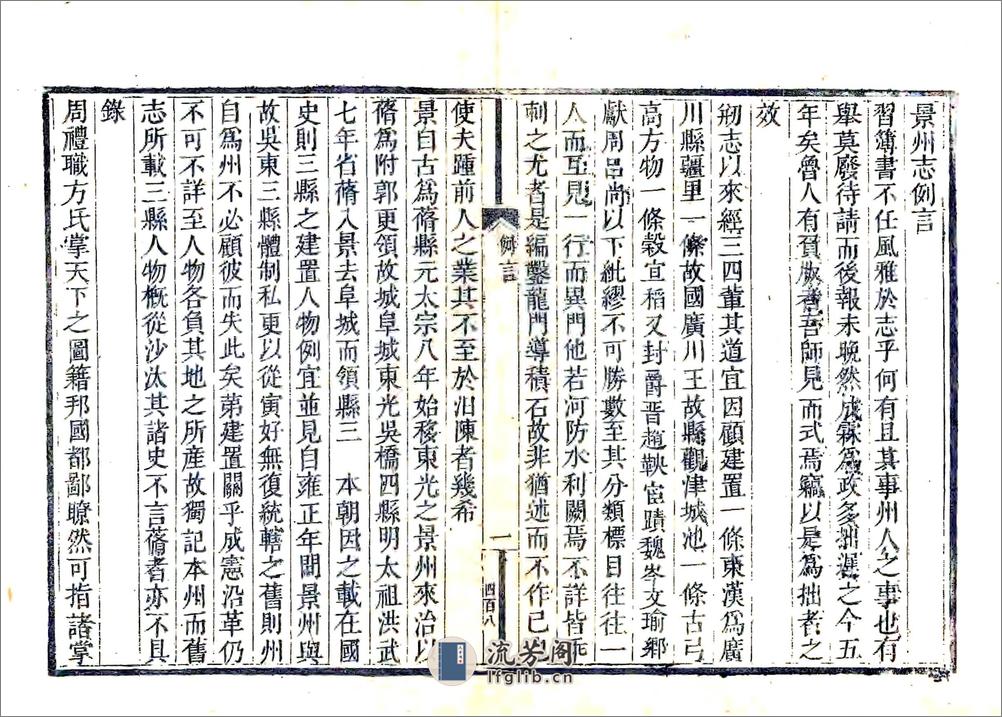 景州志例言
習簿書不任風雅於志乎何有且其事州人之事也有
舉莫廢待請而後報未晚然成霖為政多拙遲之今五
年矣魯人有獲麟者吾師見而式焉竊以是為拙者之
效
剏志以來經三四董其道宜因顧建置一條東漢為廣
川縣疆里一條故國廣川王故縣觀津城池一條古弓
高方物一條穀宜稻又封爵晋趙鞅宦蹟魏岑文瑜鄉
獻周呂尚以下紕繆不可勝數至其分類標目往往一
人而互見一行而異門他若河防水利闕焉不詳皆非
刺之尤者是編鑿龍門導積石故非猶述而不作已也
例言
一
四百八
使夫踵前人之業其不至於汨陳者幾希
景自古為蓨縣元太宗八年始移東光之景州來治以
蓨為附郭更領故城阜城東光吳橋四縣明太祖洪武
七年省蓨入景去阜城而領縣三 本朝因之載在國
史則三縣之建置人物例宜並見自雍正年間景州與
故吳東三縣體制私更以從寅好無復統轄之舊則州
自為州不必顧彼而失此矣第建置關乎成憲沿革仍
不可不詳至人物各負其地之所産故獨記本州而舊
志所載三縣人物概從沙汰其諸史不言蓨者亦不具
錄
周禮職方氏掌天下之圖籍邦國都鄙瞭然可指諸掌
流芳阁
lfglib.cn